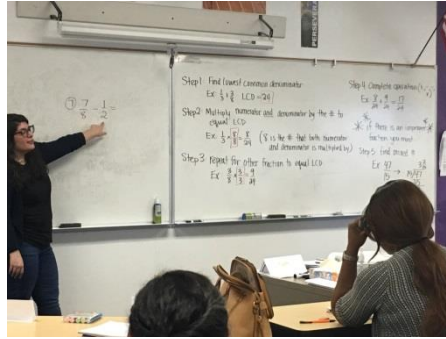 PERSEVERA
⑦ 7/8 - 1/2 =
Step 1: Find lowest common denominator
Ex: 1/3 + 3/8 LCD = 24
Step 2: Multiply numerator and denominator by the # to
equal LCD
Ex: 1/3 × 8/8 = 8/24 (8 is the # that both numerator
and denominator is multiplied by)
Step 3: Repeat for other fraction to equal LCD
Ex: 3/8 × 3/3 = 9/24
Step 4: Complete operation
Ex: 8/24 + 9/24 = 17/24
if there is an
fraction you must
Step 5:
Ex: 47